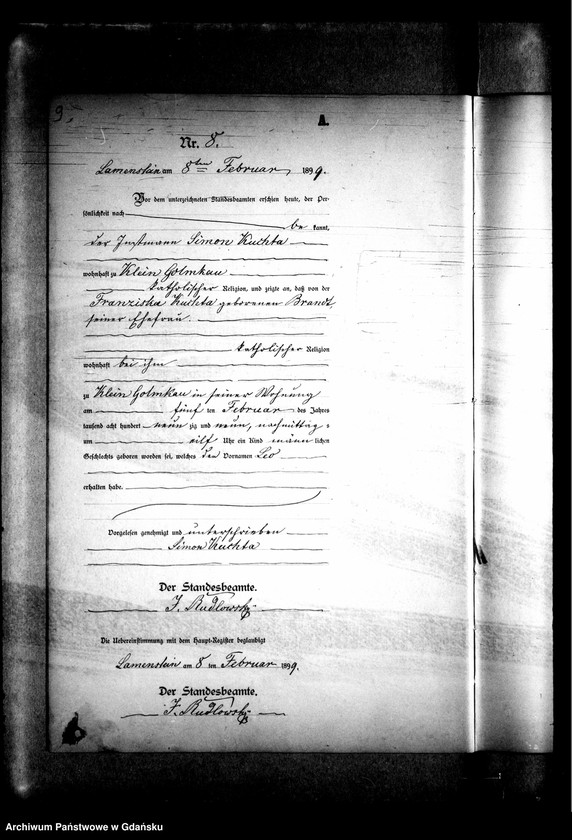 9
A.
Nr. 8.
Lamenstein am 8ten Februar 1899.
Vor dem unterzeichneten Standesbeamten erschien heute, der Per-
sönlichkeit nach
be kannt,
der Instmann Simon Kuchta
wohnhaft zu Klein Golmkau
katholischer Religion, und zeigte an, daß von der
Franziska Kuchta geborenen Brandt,
seiner Ehefrau.
katholischer Religion
wohnhaft bei ihm
zu Klein Golmkau in seiner Wohnung
am fünf ten Februar des Jahres
tausend acht hundert neun zig und neun, nachmittag s
um eilf Uhr ein Kind männ lichen
Geschlechts geboren worden sei, welches den Vornamen Leo
erhalten habe.
Vorgelesen genehmigt und unterschrieben
Simon Kuchta
Der Standesbeamte.
J. Rudlowski
Die Uebereinstimmung mit dem Haupt-Register beglaubigt
Lamenstein am 8 ten Februar 1899.
Der Standesbeamte.
J. Rudlowski
Archiwum Państwowe w Gdańsku